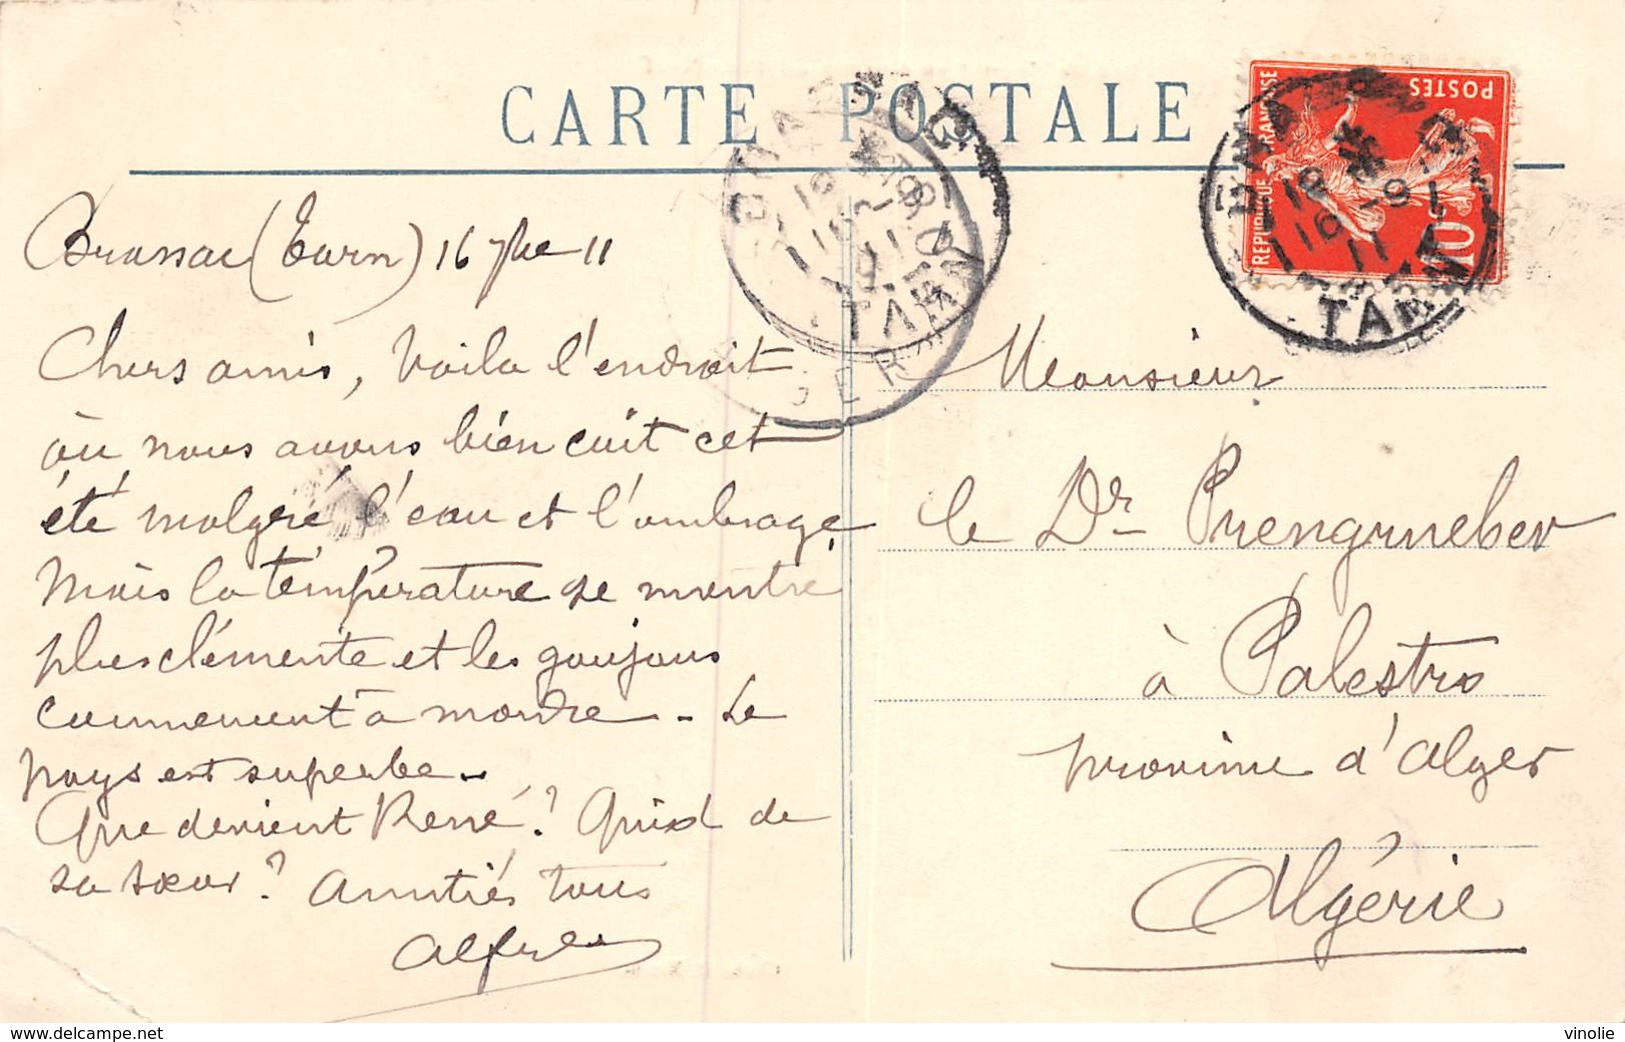 CARTE POSTALE
REPUBLIQUE FRANÇAISE
POSTES
10
TARN
TARN
Brassac (Tarn) 16 7bre 11
Chers amis, Voila l'endroit
où nous avons bien cuit cet
été malgré l'eau et l'ombrage
Mais la température se montre
plus clémente et les goujons
commencent à mordre - Le
pays est superbe -
Que devient René ? Quid de
sa sœur ? Amitiés tous
Alfred
Monsieur
le Dr Prengrueber
à Palestro
province d'Alger
Algérie
www.delcampe.net
vinolie